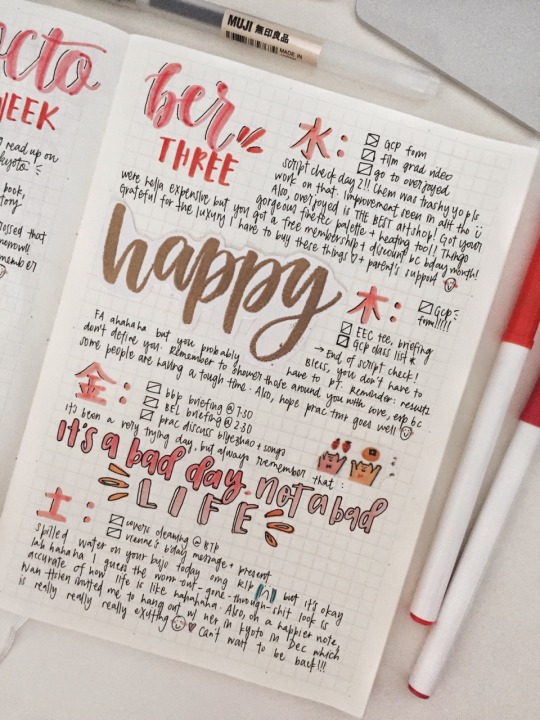 MUJI 無印良品
MADE IN
octo
WEEK
read up on
kyoto
book,
tory
rossed that
member
ber
THREE
水:
Gcp form
film grad video
go to overjoyed
script check day 2!! Chem was trashy yo pls
work on that. Improvement seen in alit tho ü
Also, overjoyed is THE BEST art shop! Got your
gorgeous finetec palette + heating tool!! Things
were hella expensive but you got a free membership + discount bc bday month!
Grateful for the luxury I have to buy these things ♡ + parent's support
happy
木:
Gcp
form!!!!!
EEC tee, briefing
GCP class list *
→ End of script check!
FA ahahaha but you probably
Bless, you don't have to
don't define you. Remember to shower those around you with love, esp bc
have to PT. Remember: results
some people are having a tough time. Also, hope prac tmr goes well
金:
bbp briefing @ 7:30
BEL briefing @ 2:30
prac discuss biyezhao + songs
It's been a very trying day, but always remember that:
It's a bad day. not a bad
LIFE
土:
covers cleaning @ BTP
vienne's b'day message + present
Spilled water on your bujo today omg RIP but it's okay
lah hahaha I guess the worn-out-gone-through-shit look is
accurate of how life is like hahahaha. Also, on a happier note,
Wan Hsien invited me to hang out w/ her in Kyoto in Dec which
is really really really exciting ♡ Can't wait to be back!!!